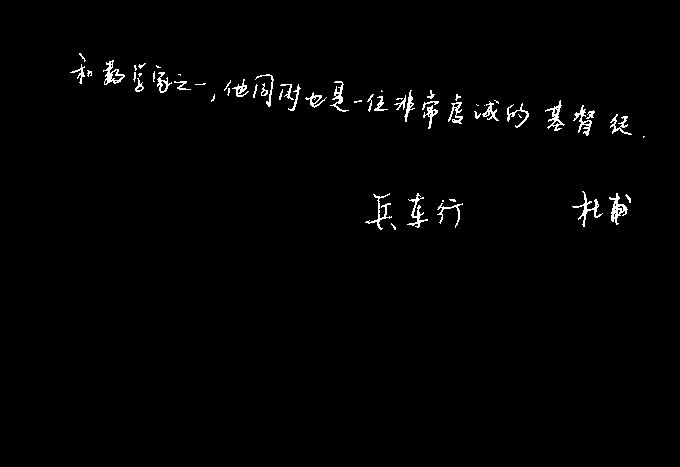 和数学家之一,他同时也是一位非常虔诚的基督徒.
兵车行 杜甫